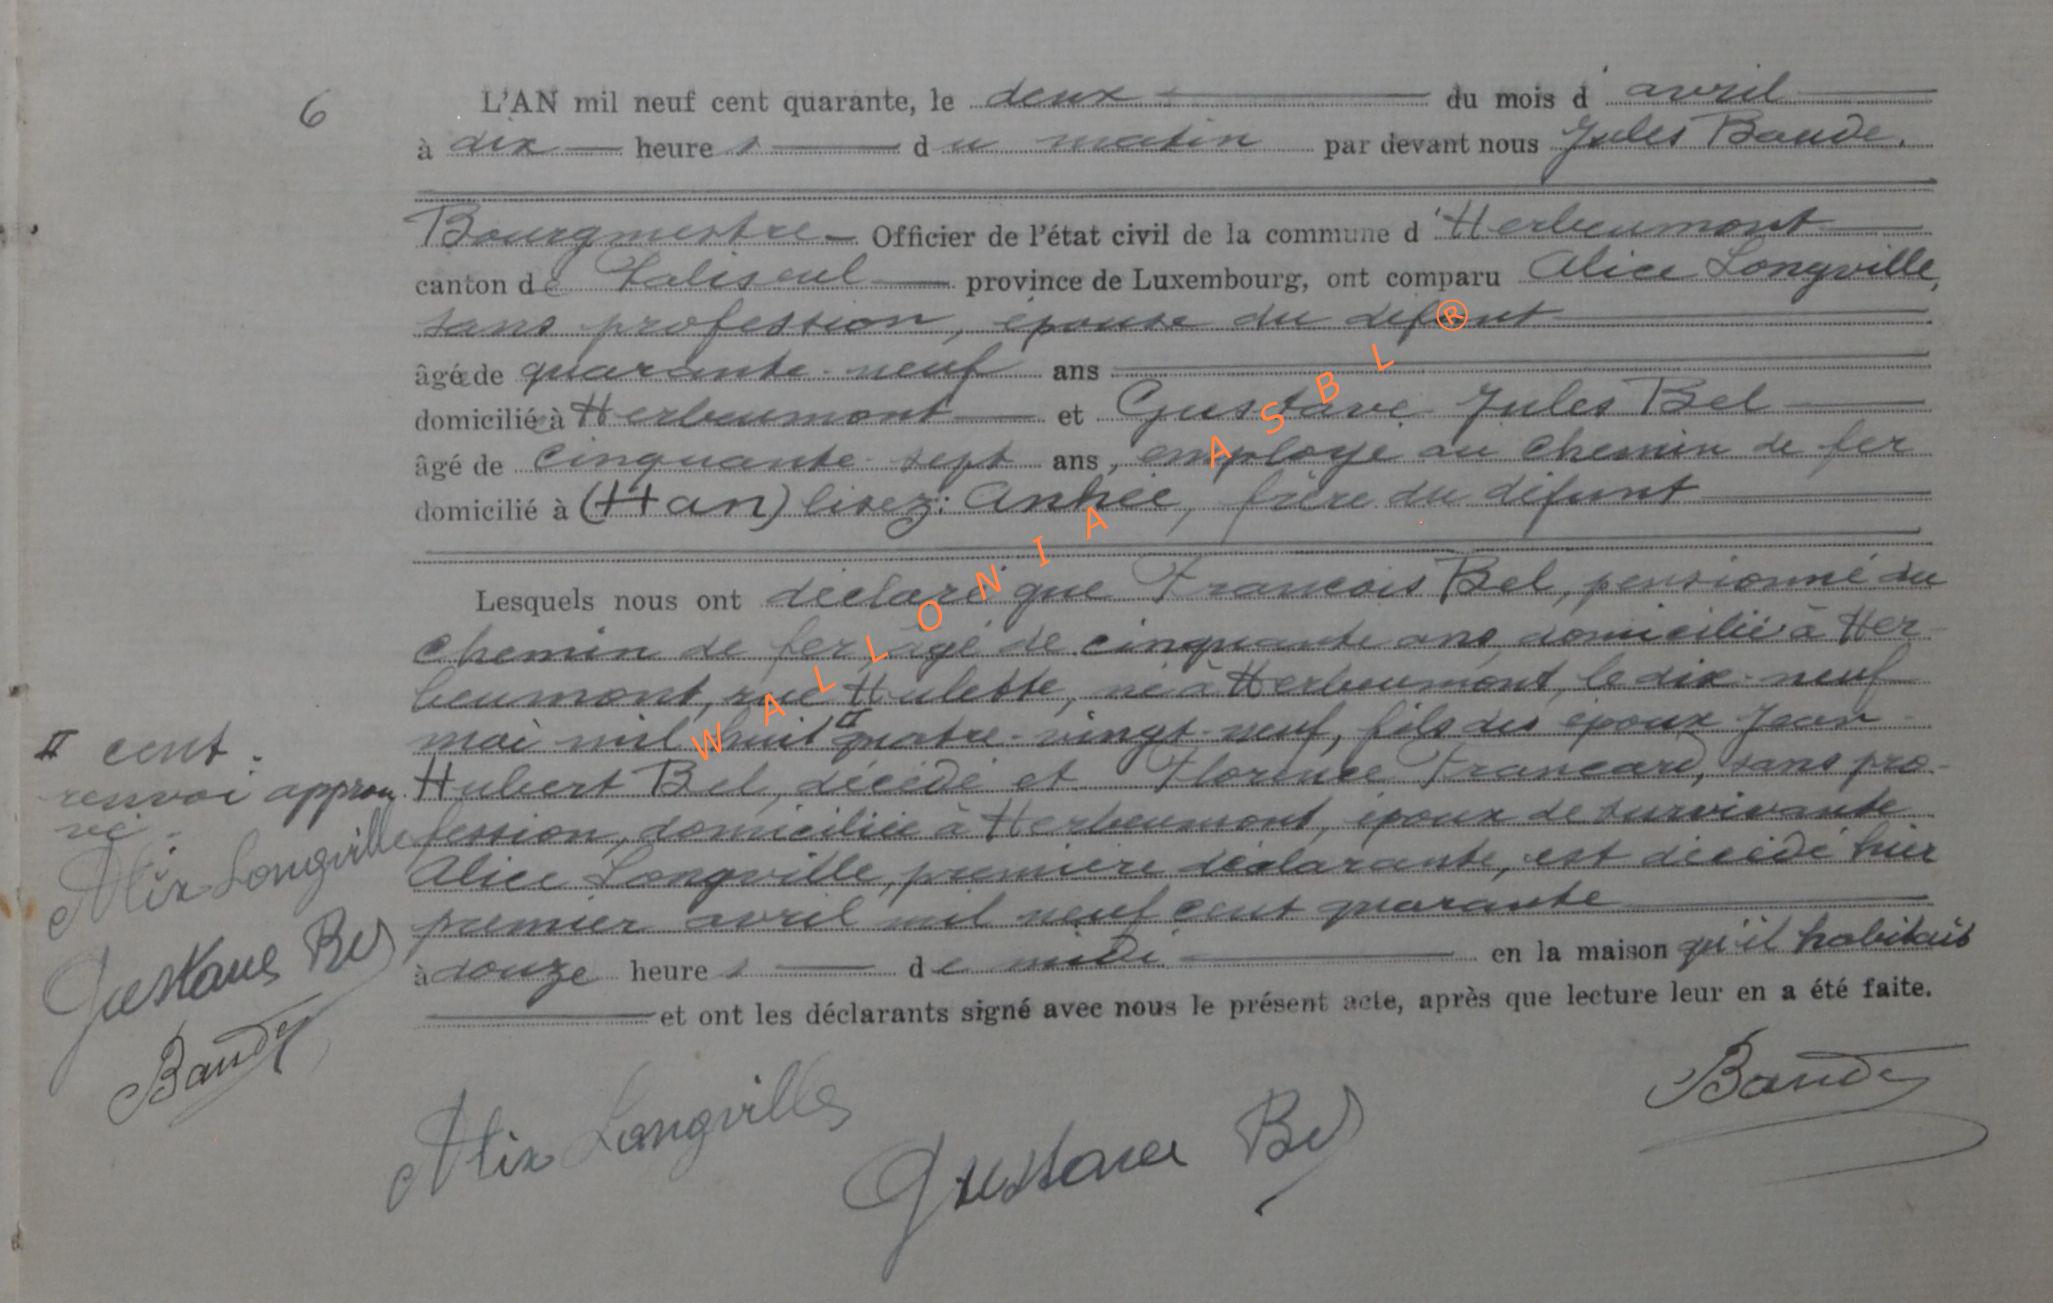 6
L'AN mil neuf cent quarante, le deux du mois d'avril
à dix heures du matin par devant nous Jules Baude,
Bourgmestre Officier de l'état civil de la commune d'Herbeumont
canton de Paliseul province de Luxembourg, ont comparu Alice Longville,
sans profession, épouse du défunt
âgée de quarante-neuf ans
domiciliée à Herbeumont et Gustave Jules Bel
âgé de cinquante-sept ans, employé au chemin de fer
domicilié à (Han) lisez: Anhée, frère du défunt
Lesquels nous ont déclaré que François Bel, pensionné du
chemin de fer, âgé de cinquante ans, domicilié à Her-
beumont, rue Hulette, né à Herbeumont, le dix-neuf
mai mil huit quatre-vingt-neuf, fils des époux Jean-
Hubert Bel, décédé et Florence Francard, sans pro-
fession, domiciliée à Herbeumont, époux de survivante
Alice Longville, première déclarante, est décédé hier
premier avril mil neuf cent quarante
à douze heures de midi en la maison qu'il habitait
et ont les déclarants signé avec nous le présent acte, après que lecture leur en a été faite.
cent.
renvoi approu
vé.
Alix Longville
Gustave Bel
Baude
Alix Longville
Gustave Bel
Baude
WALLONIA ASBL ®